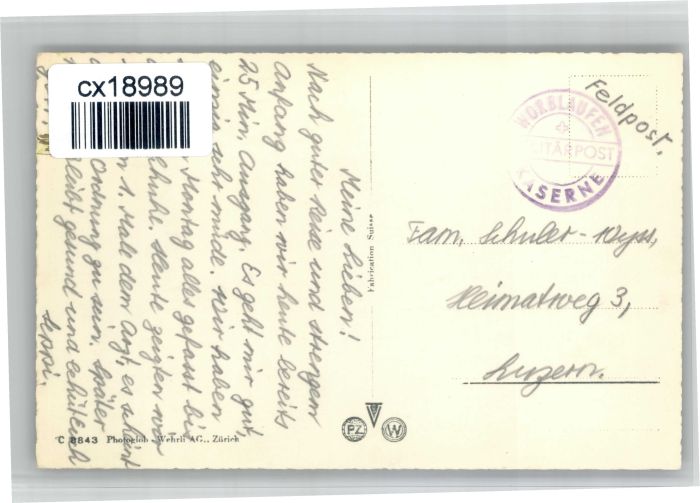 cx18989
Meine Lieben!
Nach guter Reise und strengem
Anfang haben wir heute bereits
25 Min. Ausgang. Es geht mir gut,
sehr müde. Wir haben
Montag alles gefasst bis
Schuhe. Heute zeigten wir
1. Male dem Arzt, es scheint
Ordnung zu sein. Später
bleibt gesund und
Seppi.
Fabrication Suisse
Feldpost.
WORBLAUFEN
MILITÄRPOST
KASERNE
Fam. Schuler-Wyss,
Heimatweg 3,
Luzern.
PZ W
C 8843 Photoglob-Wehrli AG., Zürich